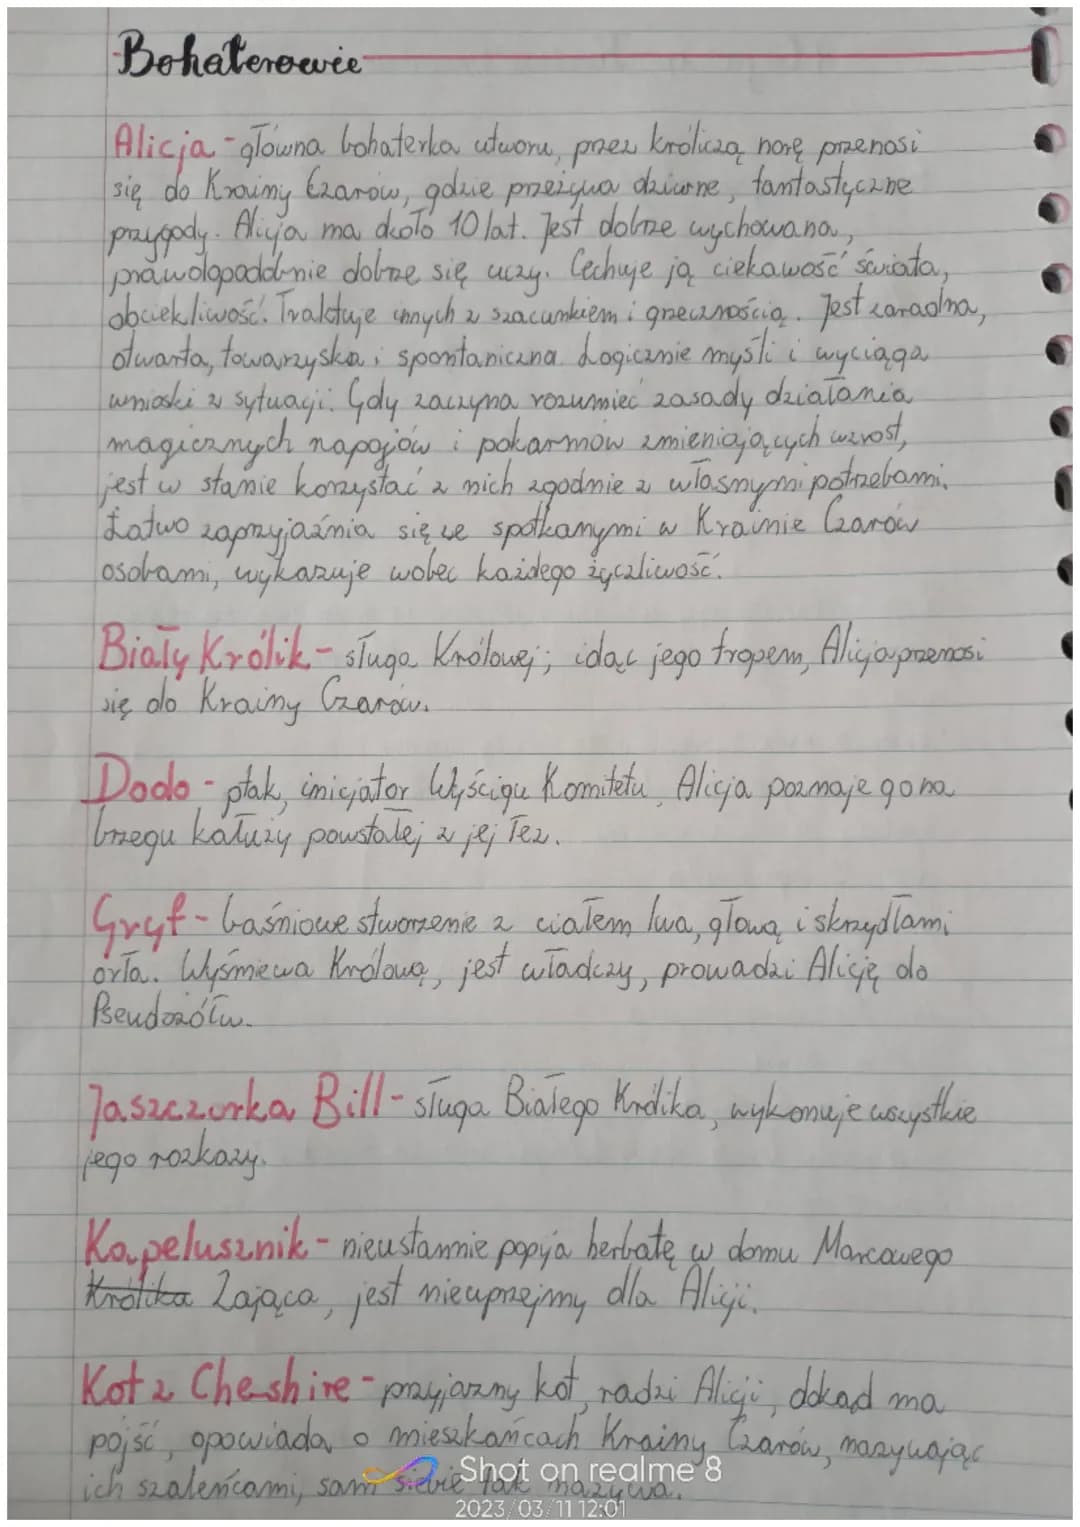 Bohaterowie
Alicja - główna bohaterka utworu, przez króliczą norę przenosi
się do Krainy Czarów, gdzie przeżywa dziwne, fantastyczne
przygody. Alicja ma około 10 lat. Jest dobrze wychowana,
prawdopodobnie dobrze się uczy. Cechuje ją ciekawość świata,
dociekliwość. Traktuje innych z szacunkiem i grzecznością. Jest zaradna,
otwarta, towarzyska i spontaniczna. Logicznie myśli i wyciąga
wnioski z sytuacji. Gdy zaczyna rozumieć zasady działania
magicznych napojów i pokarmów zmieniających wzrost,
jest w stanie korzystać z nich zgodnie z własnymi potrzebami.
Łatwo zaprzyjaźnia się ze spotkanymi w Krainie Czarów
osobami, wykazuje wobec każdego życzliwość.
Biały Królik - sługa Królowej; idąc jego tropem, Alicja przenosi
się do Krainy Czarów.
Dodo - ptak, inicjator Wyścigu Komitetu, Alicja poznaje go na
brzegu kałuży powstałej z jej łez.
Gryf - baśniowe stworzenie z ciałem lwa, głową i skrzydłami
orła. Wyśmiewa Królową, jest władczy, prowadzi Alicję do
Pseudożółwia.
Jaszczurka Bill - sługa Białego Królika, wykonuje wszystkie
jego rozkazy.
Kapelusznik - nieustannie popija herbatę w domu Marcowego
Królika Zająca, jest nieuprzejmy dla Alicji.
Kot z Cheshire - przyjazny kot, radzi Alicji, dokąd ma
pójść, opowiada o mieszkańcach Krainy Czarów, nazywając
ich szaleńcami, sam siebie tak nazywa.
Shot on realme 8
2023/03/11 12:01